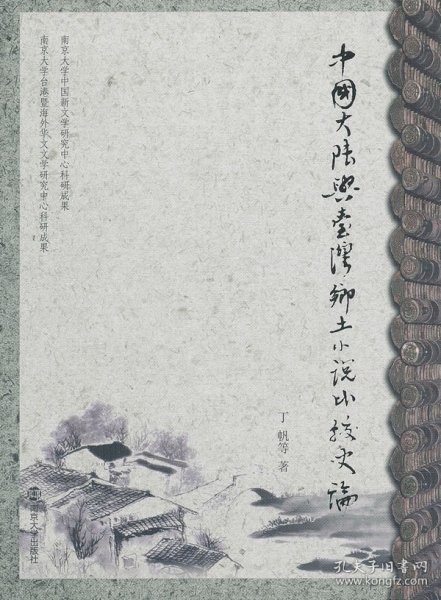 中國大陸與臺灣鄉土小說比較史論
丁帆等 著
南京大学中国新文学研究中心科研成果
南京大学台港暨海外华文文学研究中心科研成果
南京大学出版社
孔夫子旧书网
www.kongfz.com